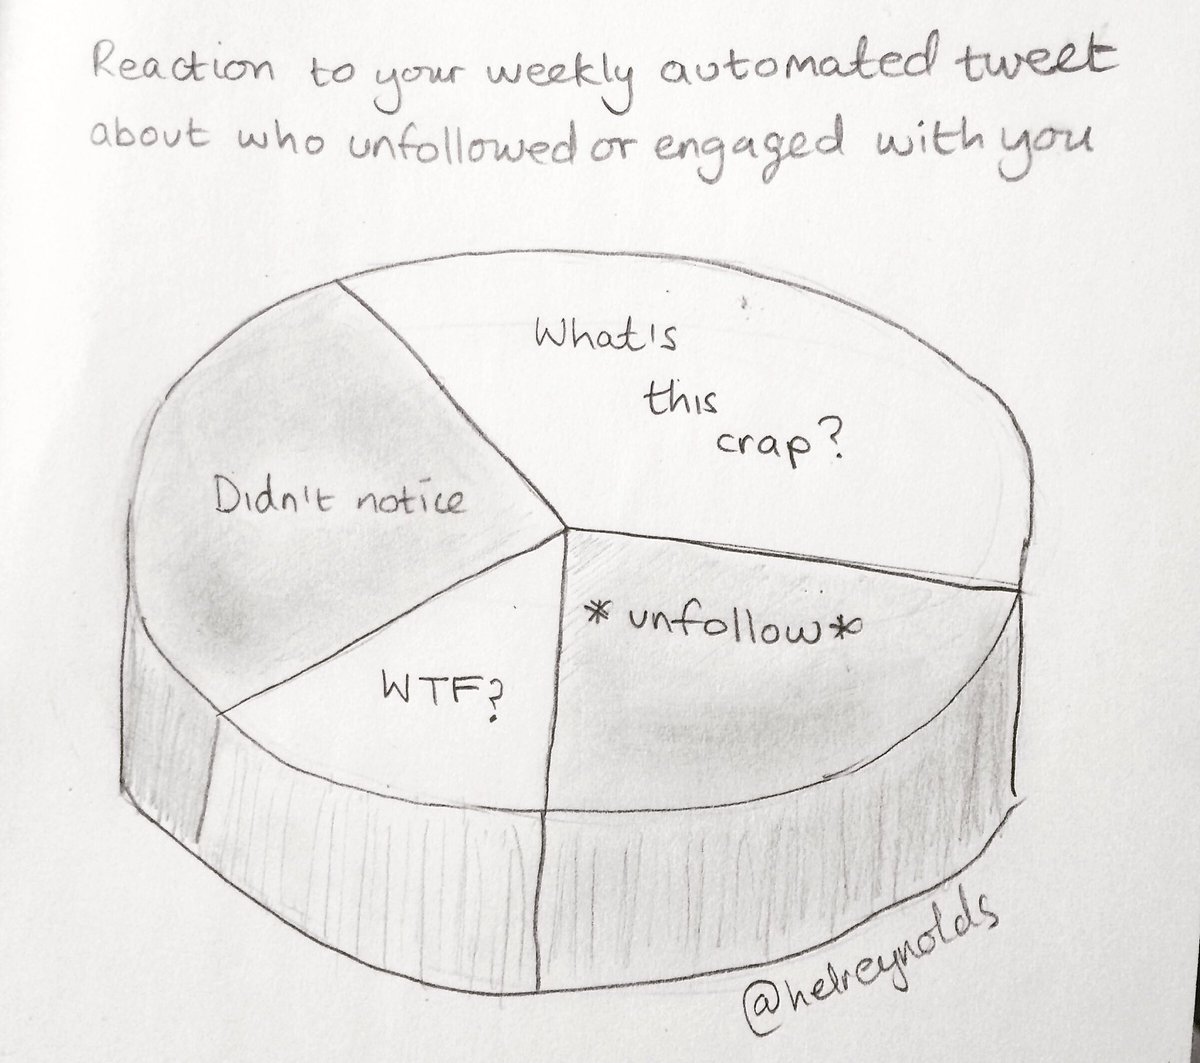 Reaction to your weekly automated tweet
about who unfollowed or engaged with you
What's
this
crap?
Didn't notice
*unfollow*
WTF?
@helreynolds